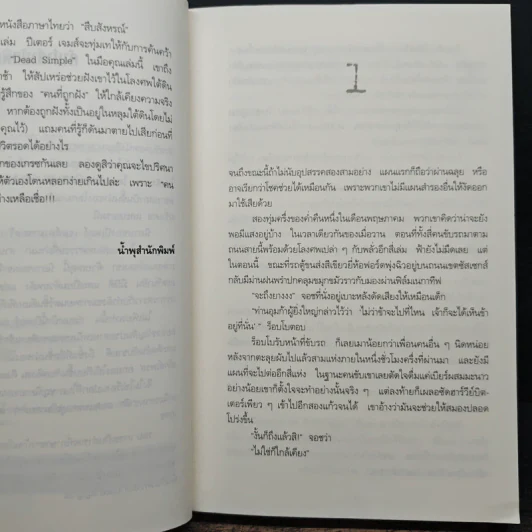 หนังสือภาษาไทยว่า "สืบสังหรณ์"
เล่ม ปีเตอร์ เจมส์จะทุ่มเทให้กับการค้นคว้า
"Dead Simple" ในมือคุณเล่มนี้ เขาถึง
ช้า ให้สัปเหร่อช่วยฝังเขาไว้ในโลงศพใต้ดิน
รู้สึกของ "คนที่ถูกฝัง" ให้ใกล้เคียงความจริง
หากต้องถูกฝังทั้งเป็นอยู่ในหลุมใต้ดินโดยไม่
คุณไว้) แถมคนที่รู้ก็ดันมาตายไปเสียก่อนที่
วิตรอดได้อย่างไร
กของเกรซกันเลย ลองดูสิว่าคุณจะไขปริศนา
ให้ตัวเองโดนหลอกง่ายเกินไปล่ะ เพราะ "คน
างเหลือเชื่อ!!!
น้ำพุสำนักพิมพ์
1
จนถึงขณะนี้ถ้าไม่นับอุปสรรคสองสามอย่าง แผนแรกก็ถือว่าผ่านฉลุย หรือ
อาจเรียกว่าโชคช่วยได้เหมือนกัน เพราะพวกเขาไม่มีแผนสำรองอื่นให้งัดออก
มาใช้เสียด้วย
สองทุ่มครึ่งของค่ำคืนหนึ่งในเดือนพฤษภาคม พวกเขาคิดว่าน่าจะยัง
พอมีแสงอยู่บ้าง ในเวลาเดียวกันของเมื่อวาน ตอนที่ทั้งสี่คนขับรถมาตาม
ถนนสายนี้พร้อมด้วยโลงศพเปล่า ๆ กับพลั่วอีกสี่เล่ม ฟ้ายังไม่มืดเลย แต่
ในตอนนี้ ขณะที่รถตู้ขนส่งสีเขียวยี่ห้อฟอร์ดพุ่งฉิวอยู่บนถนนเขตซัสเซกส์
กลับมีม่านฝนพรำปกคลุมขมุกขมัวราวกับมองผ่านฟิล์มเนกาทีฟ
"จะถึงยางงง" จอชที่นั่งอยู่เบาะหลังดัดเสียงให้เหมือนเด็ก
"ท่านอุมก้าผู้ยิ่งใหญ่กล่าวไว้ว่า 'ไม่ว่าข้าจะไปที่ไหน เจ้าก็จะได้เห็นข้า
อยู่ที่นั่น' " ร็อบโบตอบ
ร็อบโบรับหน้าที่ขับรถ ก็เลยเมาน้อยกว่าเพื่อนคนอื่น ๆ นิดหน่อย
หลังจากตะลุยผับไปแล้วสามแห่งภายในหนึ่งชั่วโมงครึ่งที่ผ่านมา และยังมี
แผนที่จะไปต่ออีกสี่แห่ง ในฐานะคนขับเขาเลยตัดใจดื่มแค่เบียร์ผสมมะนาว
อย่างน้อยเขาก็ตั้งใจจะทำอย่างนั้นจริง ๆ แต่ลงท้ายก็เผลอซัดฮาร์วีย์บิต-
เตอร์เพียว ๆ เข้าไปอีกสองแก้วจนได้ เขาอ้างว่ามันจะช่วยให้สมองปลอด
โปร่งขึ้น
"งั้นก็ถึงแล้วสิ!" จอชว่า
"ไม่ใช่ก็ใกล้เคียง"